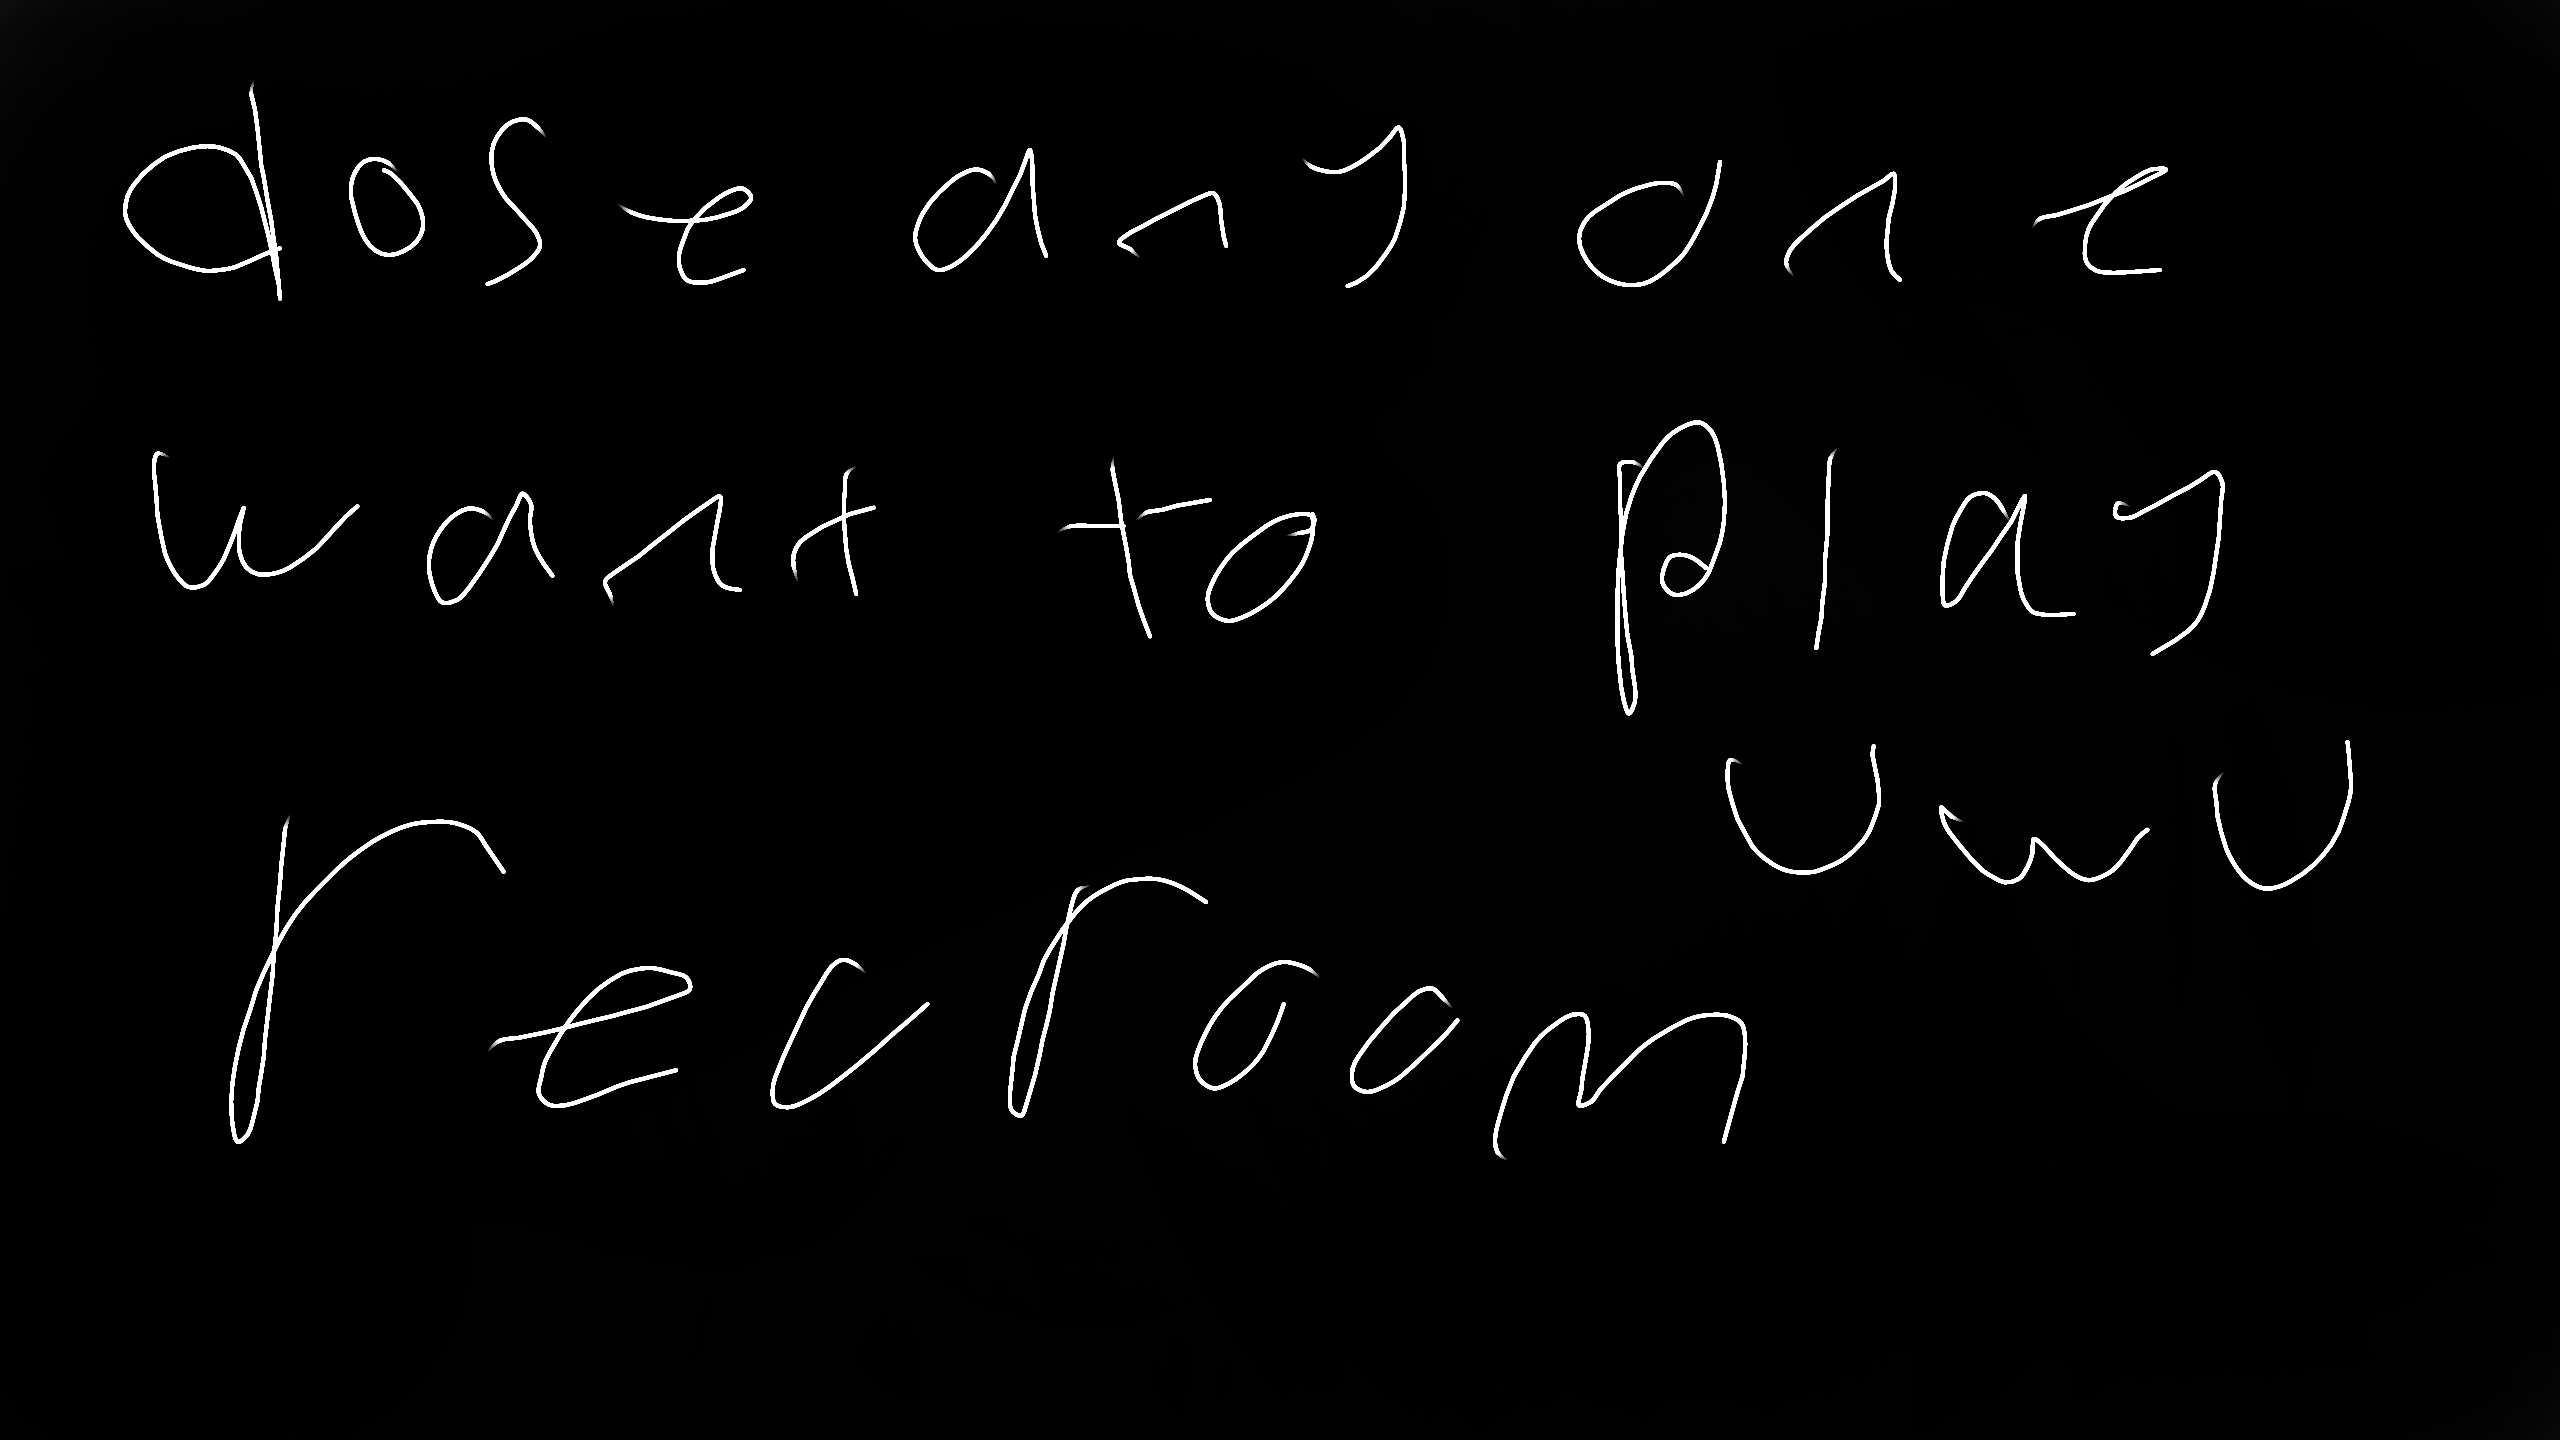 dose any one
want to play
uwu
recroom